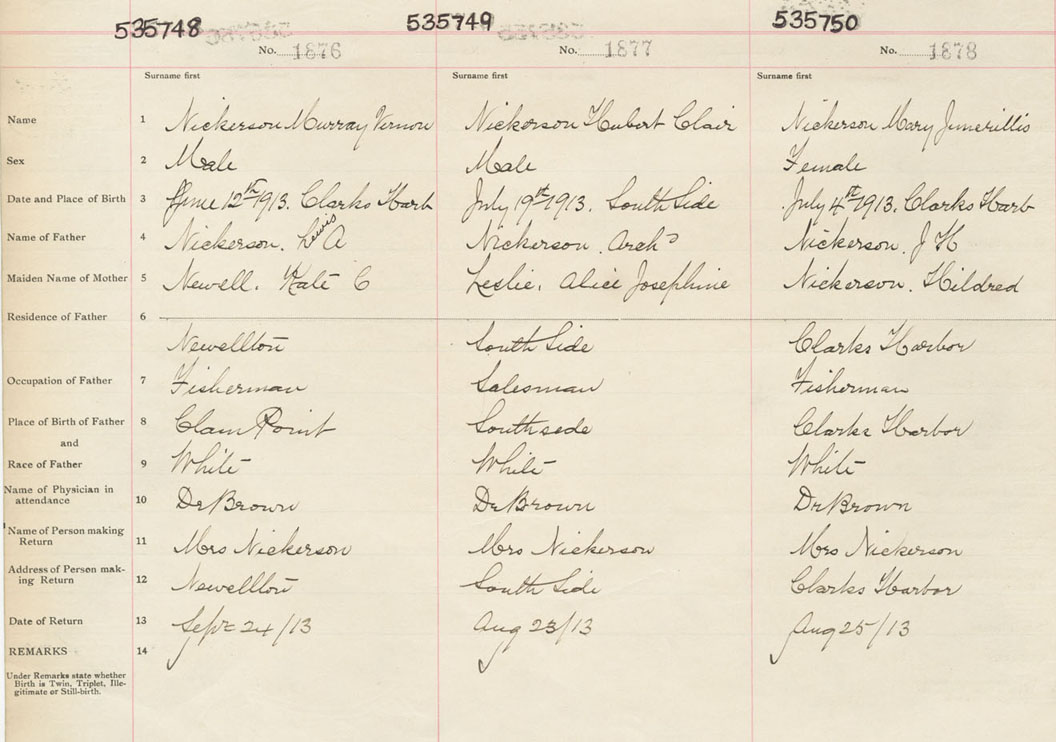 535748 535749 535750
No. 1876 No. 1877 No. 1878
Surname first Surname first Surname first
Name 1 Nickerson Murray Vernon Nickerson Hubert Clair Nickerson Mary
Sex 2 Male Male Female
Date and Place of Birth 3 June 12th 1913. Clarks Harb July 19st 1913. South Side July 4st 1913. Clarks Harb
Name of Father 4 Nickerson. Lewis A Nickerson. Archd Nickerson. J H
Maiden Name of Mother 5 Newell. Kate C Leslie. Alice Josephine Nickerson. Hildred
Residence of Father 6
Newellton South Side Clarks Harbor
Occupation of Father 7 Fisherman Salesman Fisherman
Place of Birth of Father 8 Clam Point Southsede Clarks Harbor
and
Race of Father 9 White White White
Name of Physician in
attendance 10 Dr Brown Dr Brown Dr Brown
Name of Person making
Return 11 Mrs Nickerson Mrs Nickerson Mrs Nickerson
Address of Person mak-
ing Return 12 Newellton South Side Clarks Harbor
Date of Return 13 Sept 24/13 Aug 23/13 Aug 25/13
REMARKS 14
Under Remarks state whether
Birth is Twin, Triplet, Ille-
gitimate or Still-birth.